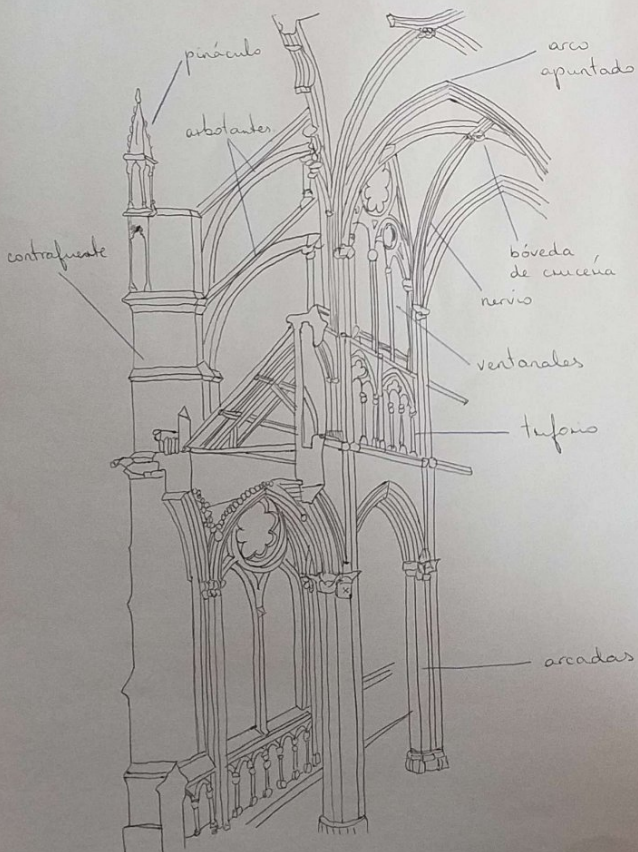 pináculo
arco
apuntado
arbotantes
contrafuerte
bóveda
de crucería
nervio
ventanales
triforio
arcadas